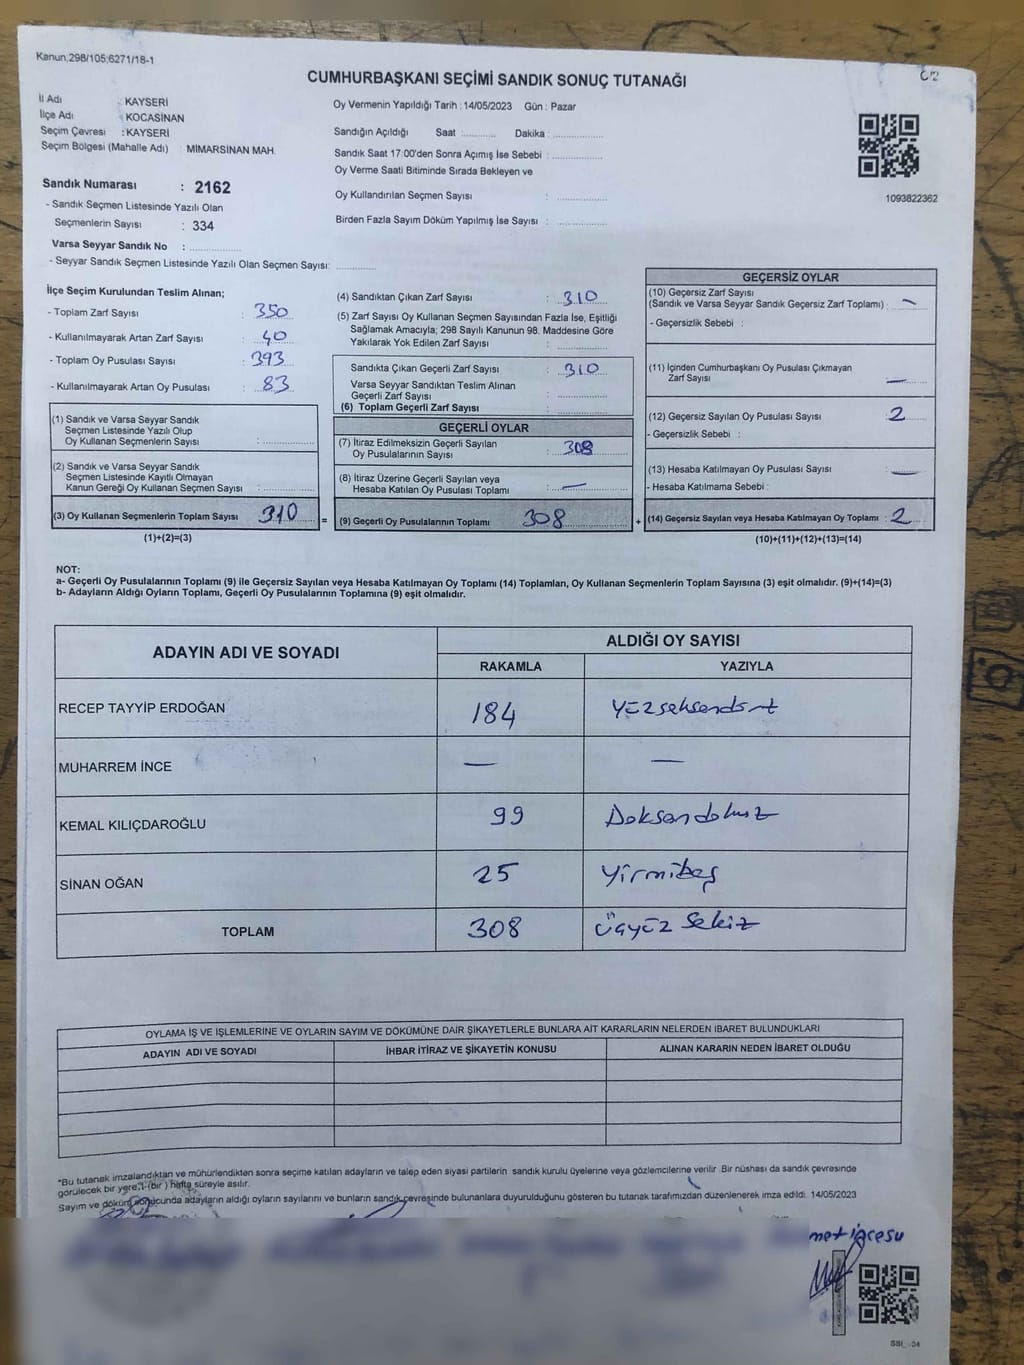 Kanun,298/105;6271/18-1
CUMHURBAŞKANI SEÇİMİ SANDIK SONUÇ TUTANAĞI
İl Adı : KAYSERİ
İlçe Adı : KOCASİNAN
Seçim Çevresi : KAYSERİ
Seçim Bölgesi (Mahalle Adı) : MİMARSİNAN MAH.
Sandık Numarası : 2162
- Sandık Seçmen Listesinde Yazılı Olan
Seçmenlerin Sayısı : 334
Varsa Seyyar Sandık No : ............
- Seyyar Sandık Seçmen Listesinde Yazılı Olan Seçmen Sayısı: ............
Oy Vermenin Yapıldığı Tarih : 14/05/2023 Gün : Pazar
Sandığın Açıldığı Saat : ............ Dakika : ............
Sandık Saat 17:00'den Sonra Açımış İse Sebebi : ............
Oy Verme Saati Bitiminde Sırada Bekleyen ve
Oy Kullandırılan Seçmen Sayısı : ............
Birden Fazla Sayım Döküm Yapılmış İse Sayısı : ............
1093822362
İlçe Seçim Kurulundan Teslim Alınan;
- Toplam Zarf Sayısı : 350
- Kullanılmayarak Artan Zarf Sayısı : 40
- Toplam Oy Pusulası Sayısı : 393
- Kullanılmayarak Artan Oy Pusulası : 83
(1) Sandık ve Varsa Seyyar Sandık
Seçmen Listesinde Yazılı Olup
Oy Kullanan Seçmenlerin Sayısı : ............
(2) Sandık ve Varsa Seyyar Sandık
Seçmen Listesinde Kayıtlı Olmayan
Kanun Gereği Oy Kullanan Seçmen Sayısı : ............
(3) Oy Kullanan Seçmenlerin Toplam Sayısı 310 =
(1)+(2)=(3)
(4) Sandıktan Çıkan Zarf Sayısı : 310
(5) Zarf Sayısı Oy Kullanan Seçmen Sayısından Fazla İse, Eşitliği
Sağlamak Amacıyla; 298 Sayılı Kanunun 98. Maddesine Göre
Yakılarak Yok Edilen Zarf Sayısı : ............
Sandıkta Çıkan Geçerli Zarf Sayısı : 310
Varsa Seyyar Sandıktan Teslim Alınan
Geçerli Zarf Sayısı : ............
(6) Toplam Geçerli Zarf Sayısı : ............
GEÇERLİ OYLAR
(7) İtiraz Edilmeksizin Geçerli Sayılan
Oy Pusulalarının Sayısı : 308
(8) İtiraz Üzerine Geçerli Sayılan veya
Hesaba Katılan Oy Pusulası Toplamı : —
(9) Geçerli Oy Pusulalarının Toplamı 308 +
GEÇERSİZ OYLAR
(10) Geçersiz Zarf Sayısı
(Sandık ve Varsa Seyyar Sandık Geçersiz Zarf Toplamı) : —
- Geçersizlik Sebebi :
(11) İçinden Cumhurbaşkanı Oy Pusulası Çıkmayan
Zarf Sayısı : —
(12) Geçersiz Sayılan Oy Pusulası Sayısı : 2
- Geçersizlik Sebebi :
(13) Hesaba Katılmayan Oy Pusulası Sayısı : —
- Hesaba Katılmama Sebebi :
(14) Geçersiz Sayılan veya Hesaba Katılmayan Oy Toplamı : 2
(10)+(11)+(12)+(13)=(14)
NOT:
a- Geçerli Oy Pusulalarının Toplamı (9) ile Geçersiz Sayılan veya Hesaba Katılmayan Oy Toplamı (14) Toplamları, Oy Kullanan Seçmenlerin Toplam Sayısına (3) eşit olmalıdır. (9)+(14)=(3)
b- Adayların Aldığı Oyların Toplamı, Geçerli Oy Pusulalarının Toplamına (9) eşit olmalıdır.
ADAYIN ADI VE SOYADI ALDIĞI OY SAYISI
RAKAMLA YAZIYLA
RECEP TAYYİP ERDOĞAN 184 Yüzseksendört
MUHARREM İNCE — —
KEMAL KILIÇDAROĞLU 99 Doksandokuz
SİNAN OĞAN 25 Yirmibeş
TOPLAM 308 Üçyüz Sekiz
OYLAMA İŞ VE İŞLEMLERİNE VE OYLARIN SAYIM VE DÖKÜMÜNE DAİR ŞİKAYETLERLE BUNLARA AİT KARARLARIN NELERDEN İBARET BULUNDUKLARI
ADAYIN ADI VE SOYADI İHBAR İTİRAZ VE ŞİKAYETİN KONUSU ALINAN KARARIN NEDEN İBARET OLDUĞU
*Bu tutanak imzalandıktan ve mühürlendikten sonra seçime katılan adayların ve talep eden siyasi partilerin sandık kurulu üyelerine veya gözlemcilerine verilir. Bir nüshası da sandık çevresinde
görülecek bir yere 1 (bir ) hafta süreyle asılır.
Sayım ve döküm sonucunda adayların aldığı oyların sayılarını ve bunların sandık çevresinde bulunanlara duyurulduğunu gösteren bu tutanak tarafımızdan düzenlenerek imza edildi. 14/05/2023